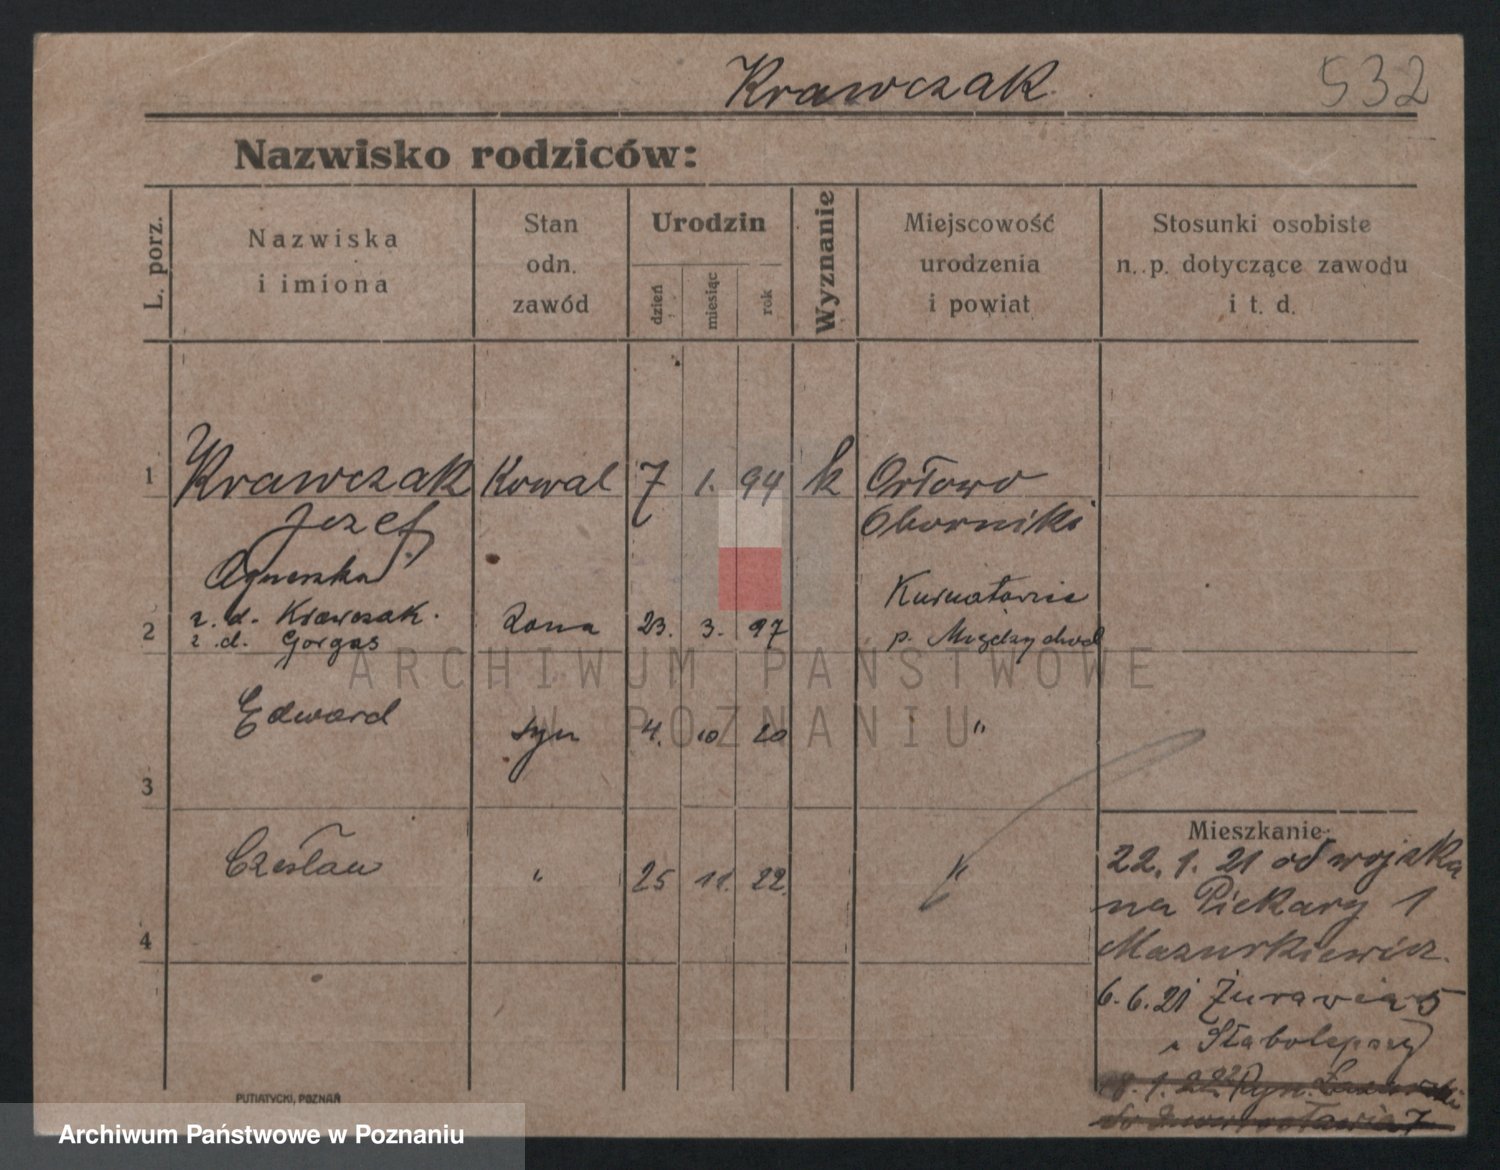 Krawczak
532
Nazwisko rodziców:
L. porz.
Nazwiska
i imiona
Stan
odn.
zawód
Urodzin
dzień
miesiąc
rok
Wyznanie
Miejscowość
urodzenia
i powiat
Stosunki osobiste
n. p. dotyczące zawodu
i t. d.
1 Krawczak Kowal 7 1. 94 k Orłowo
Jozef Oborniki
Agnieszka
z. d. Krawczak.
2 z. d. Gorgas Zona 23. 3. 97 p. Międzychód
Edward syn 4. 10 20 "
3
Czesław " 25 11. 22. "
4
Mieszkanie:
22. 1. 21 od wojska
na Piekary 1
Mazurkiewicz.
6. 6. 21 Żurawia 5
ARCHIWUM PAŃSTWOWE
W POZNANIU
PUTIATYCKI, POZNAŃ
Archiwum Państwowe w Poznaniu